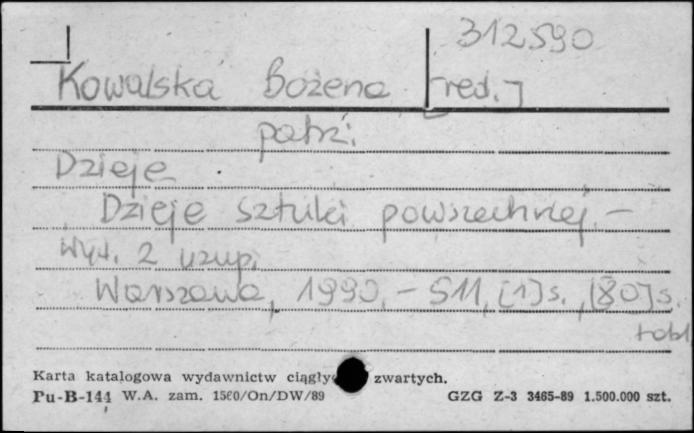 312590
Kowalska Bożena [red.]
patrz:
Dzieje
Dzieje sztuki powszechnej. –
Wyd. 2 uzup.
Warszawa, 1990. – 511, [1] s., [80] s.
tabl.
Karta katalogowa wydawnictw ciągły zwartych.
Pu-B-144 W.A. zam. 1560/On/DW/89 GZG Z-3 3465-89 1.500.000 szt.